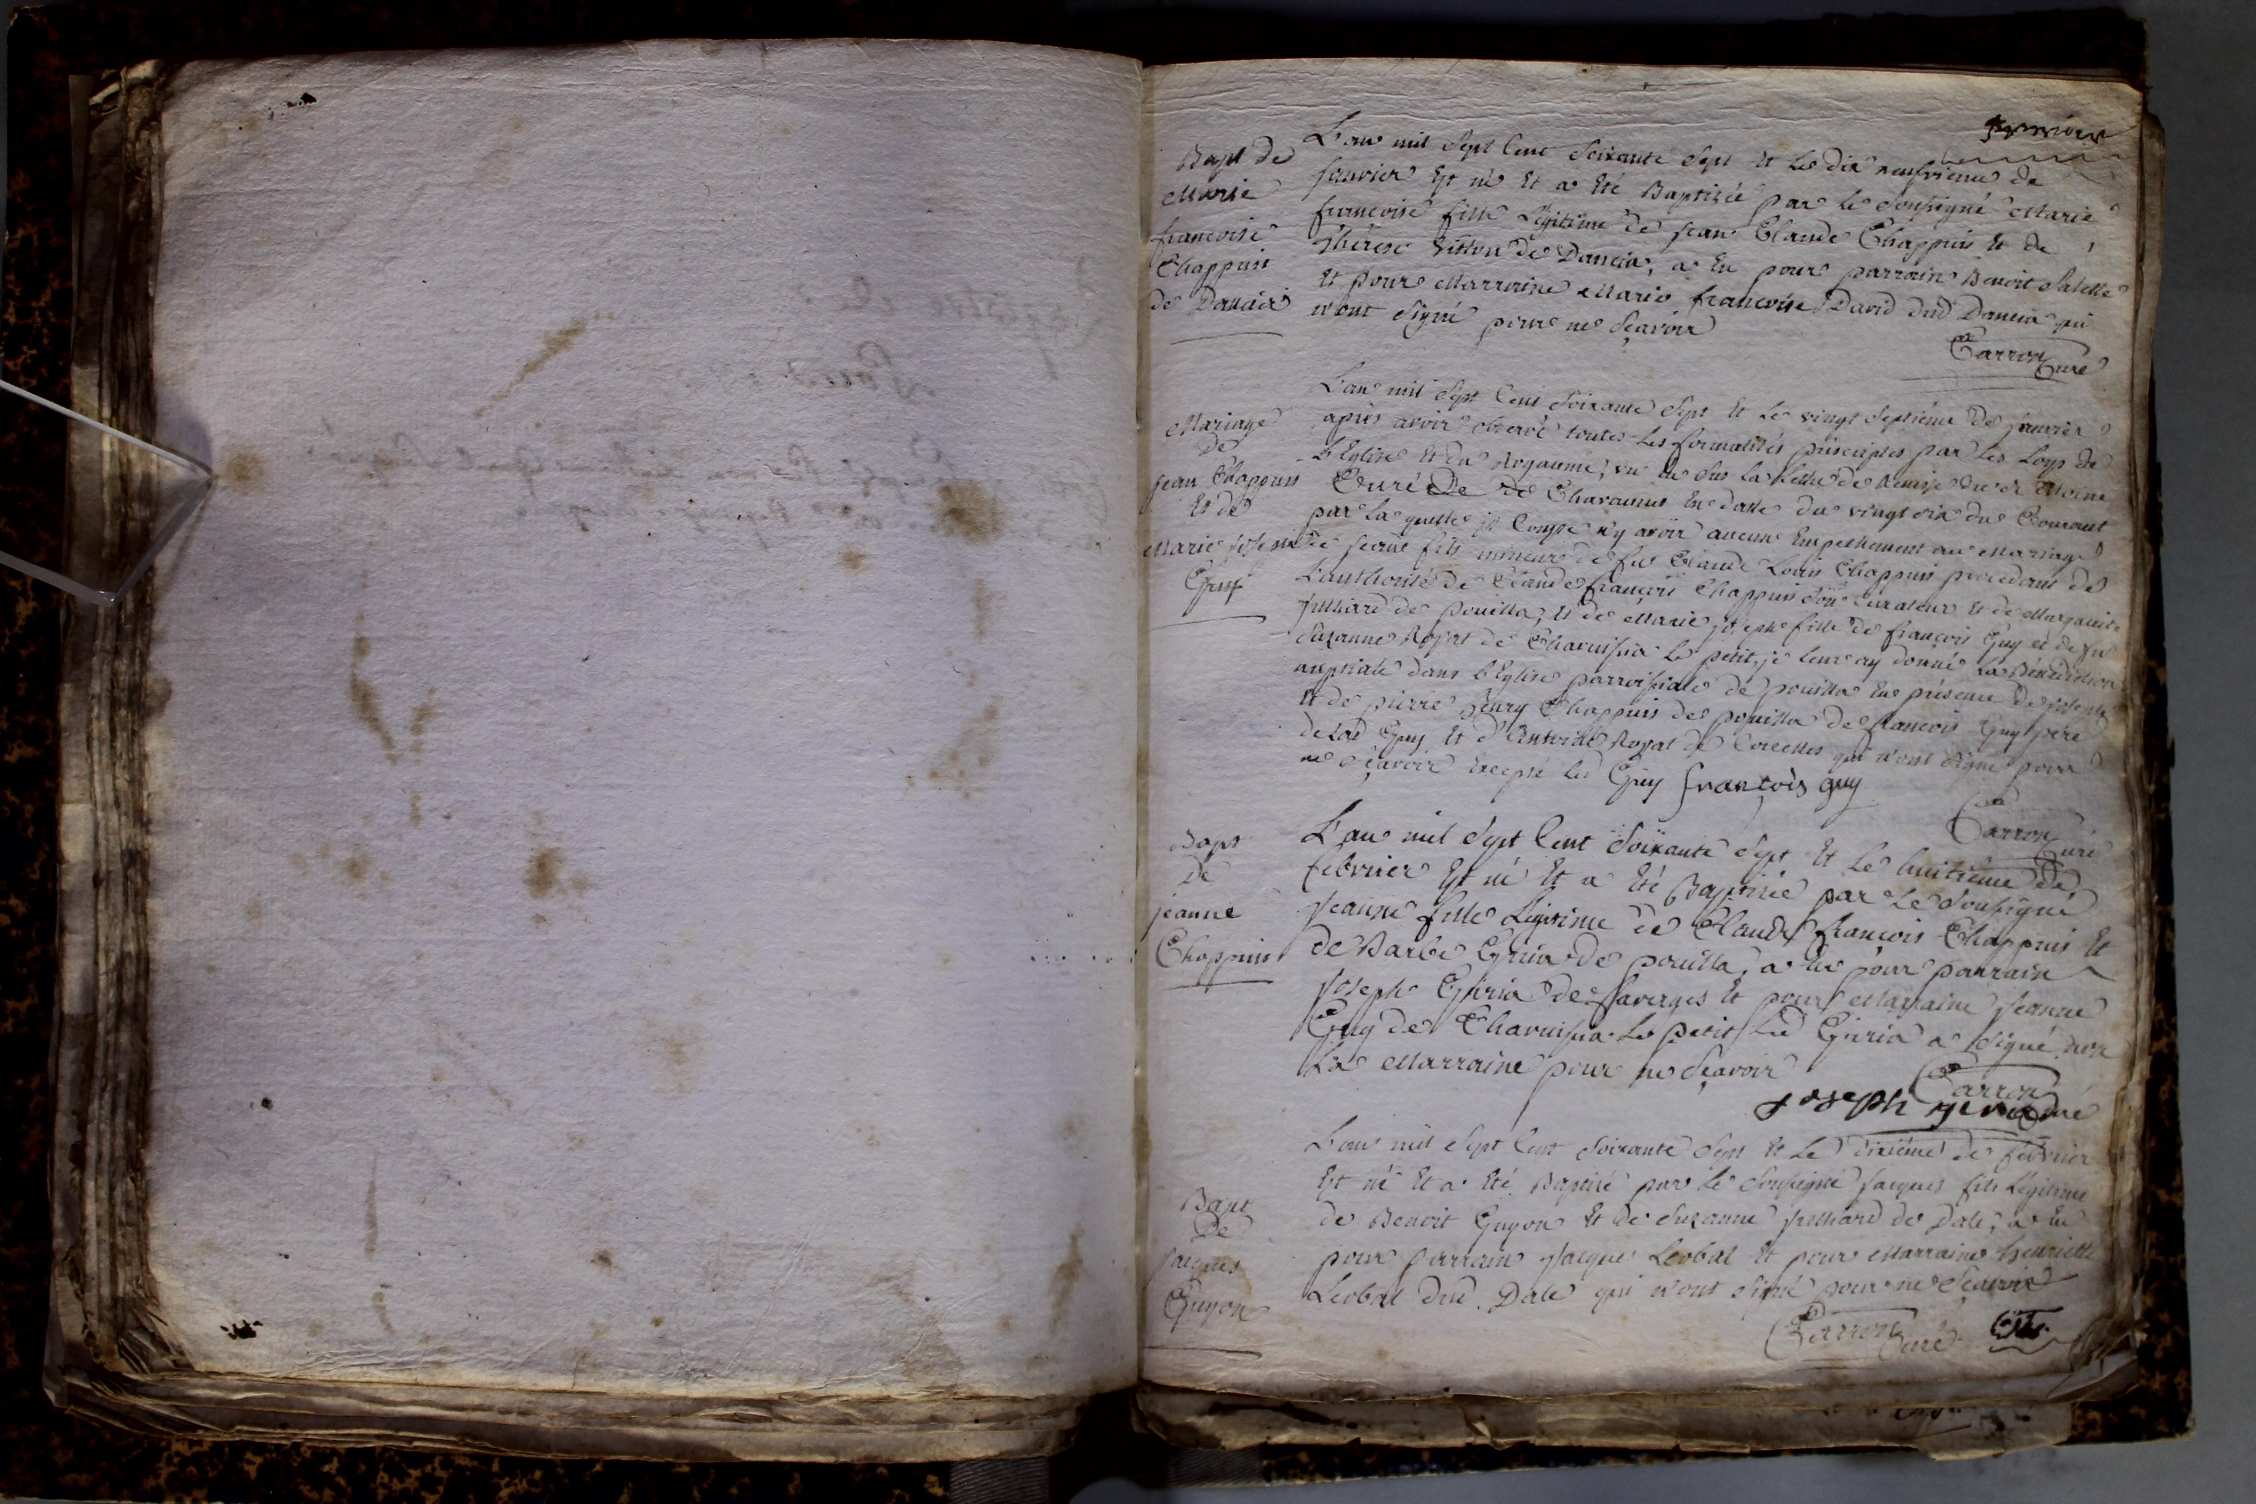 premier
Bapt de
Marie
francoise
Chappuis
de Dancia
L'an mil Sept Cent Soixante Sept Et Le dix neufvieme de
Janvier Est né Et a Eté Baptisée par le Soussigné Marie
francoise fille Légitime de Jean Claude Chappuis Et de
thérese Vitton de Dancia, a Eu pour parrain Benoit
Et pour Marraine Marie francoise David dud Dancia qui
n'ont Signé pour ne Sçavoir
Carron Curé
Mariage
de
Jean Chappuis
Et de
Marie Joseph
Guy
L'an mil Sept Cent Soixante Sept Et Le vingt Septieme de Janvier
après avoir observé toutes Les formalités prescriptes par Les Loys de
L'Eglise Et du Royaume, vu La Lettre de Remise de Mr
Curé de Charnod En datte du vingt six du Courant
par La quelle il Conste n'y avoir aucun Empechement au Mariage
de Jean fils mineur de feu Claude Louis Chappuis procedant de
L'authorité de Claude françois Chappuis Son Curateur Et de Marguerite
Julliard de pouilla, Et de Marie Joseph fille de françois Guy et de fu
Suzanne Royat de Charnissia Le petit, je leur ay donné La Bénédiction
nuptiale dans L'Eglise parroissiale de pouilla En présence de
Et de pierre henry Chappuis de pouilla de francois Guy pere
de Lad Guy Et d'Antoine Royat de qui n'ont Signé pour
ne Sçavoir Excepté Led Guy françois guy
Carron Curé
Bapt
de
jeanne
Chappuis
L'an mil Sept Cent Soixante Sept Et Le huitieme de
février Est né Et a Eté Baptisée par Le Soussigné
Jeanne fille Légitime de Claude françois Chappuis Et
de Barbe Griria de pouilla, a Eu pour parrain
Joseph Griria de Et pour Marraine Jeanne
Guy de Charnissia Le petit Led Griria a Signé non
La Marraine pour ne Sçavoir
Carron Curé
joseph
Bapt
de
Jacques
Guyon
L'an mil Sept Cent Soixante Sept Et Le dixieme de février
Est né Et a Eté Baptisé par Le Soussigné Jacques fils Légitime
de Benoit Guyon Et de Suzanne Julliard de Dale, a Eu
pour parrain Jacque Leobal Et pour Marraine henriette
Leobal dud. Dale qui n'ont Signé pour ne Sçavoir
Carron Curé